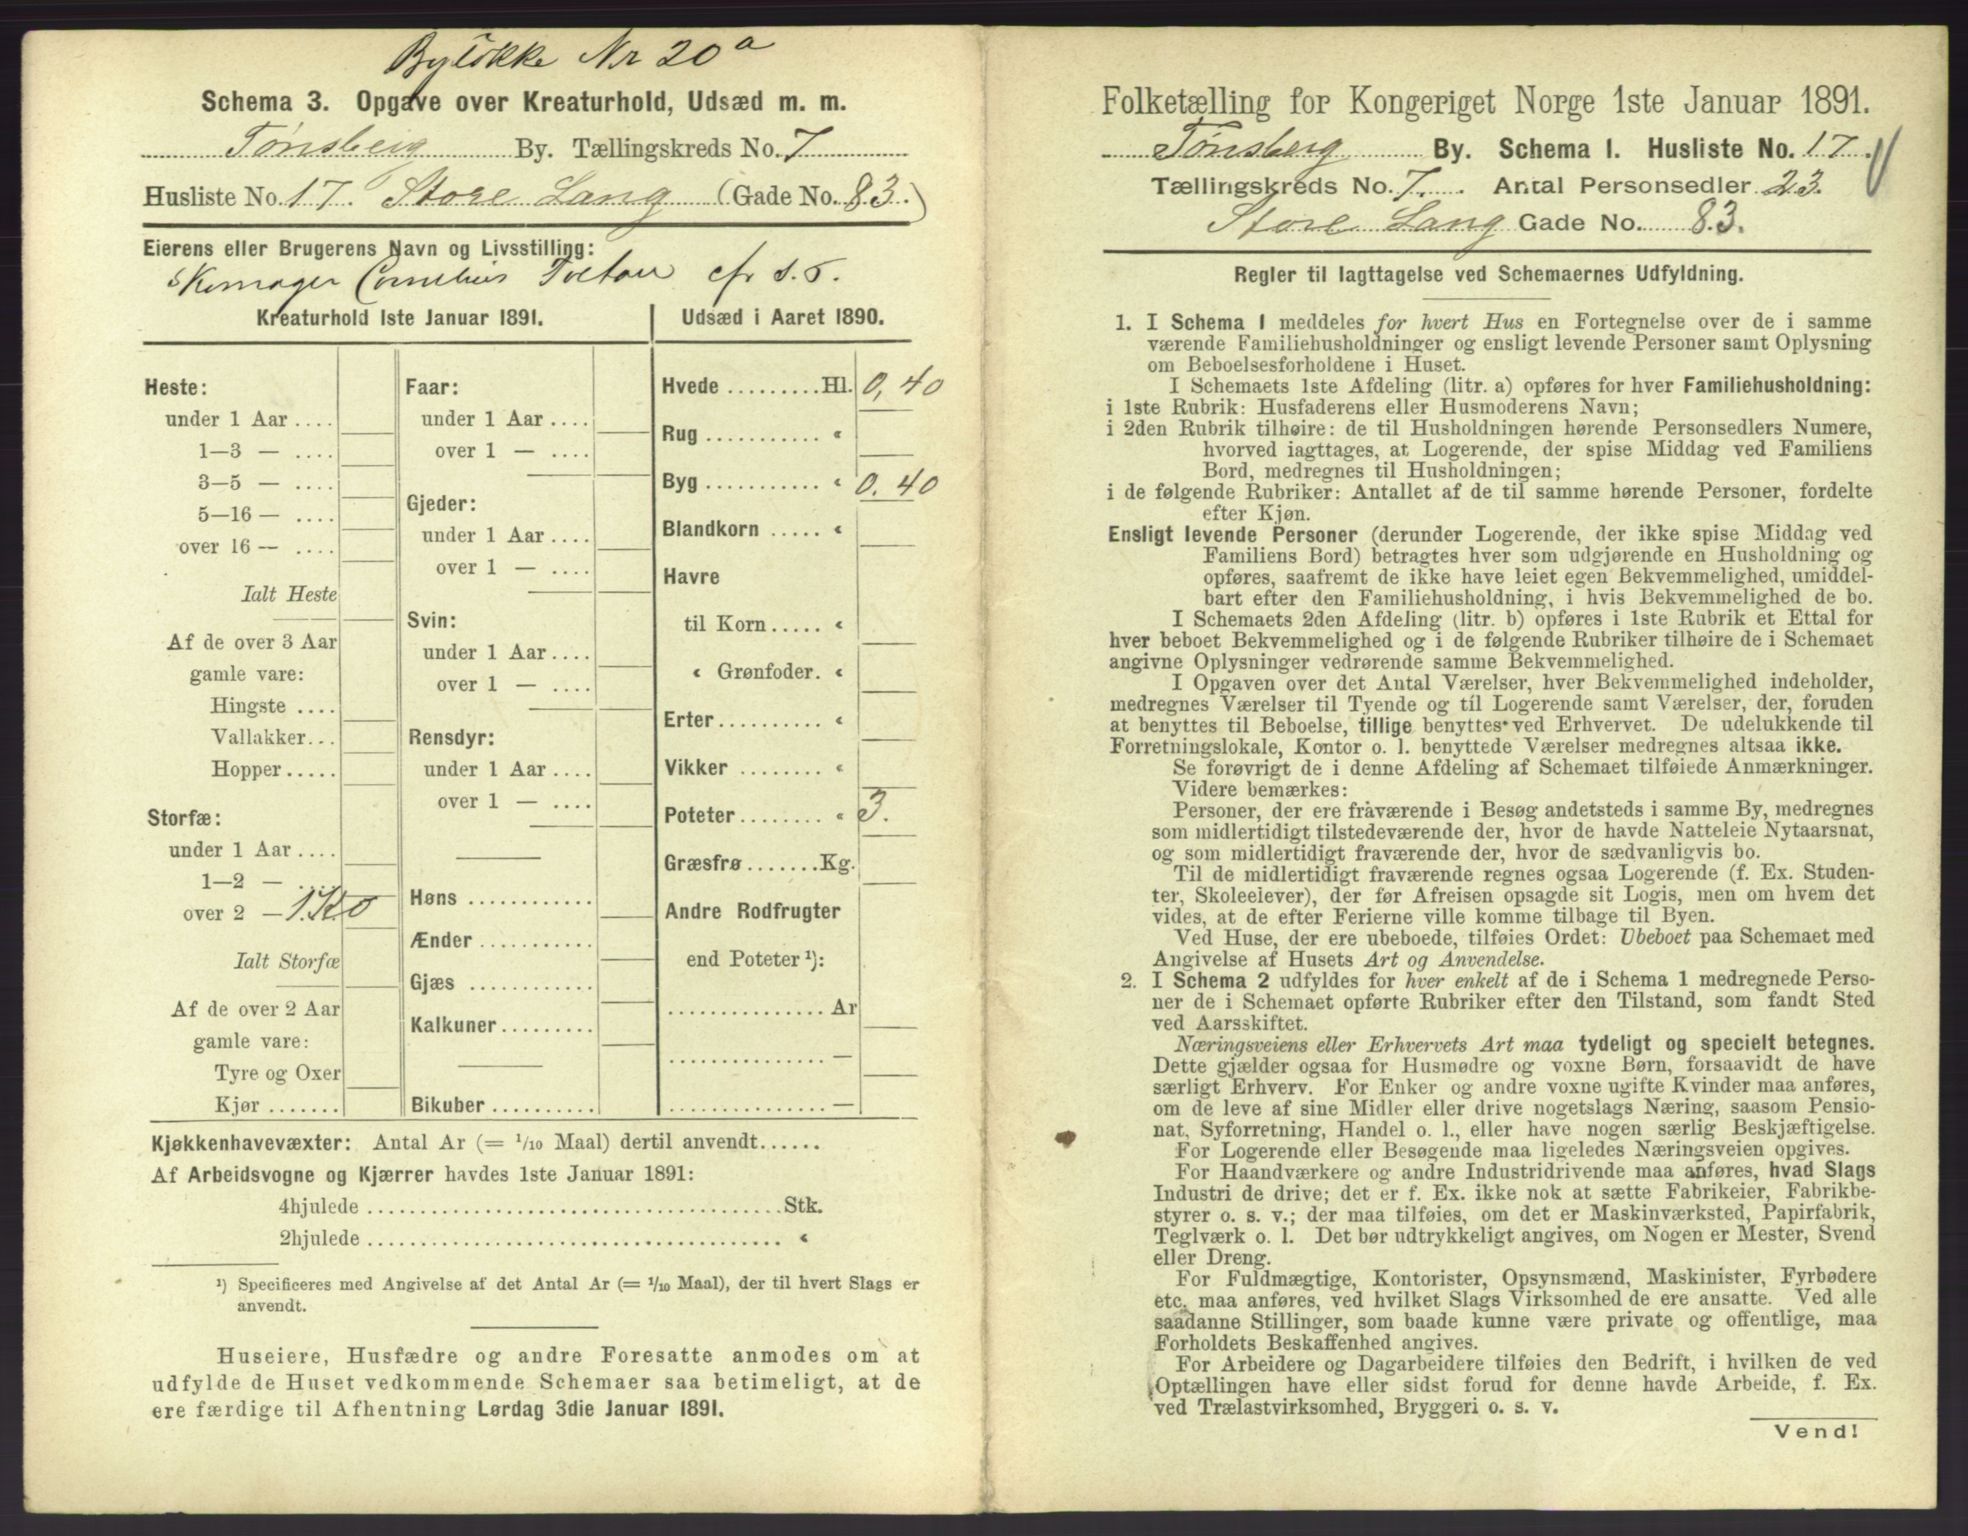 Byløkke Nr 20a
Schema 3. Opgave over Kreaturhold, Udsæd m. m.
Tønsberg By. Tællingskreds No. 7
Husliste No. 17. Store Lang (Gade No. 83.)
Eierens eller Brugerens Navn og Livsstilling:
Skomager Cornelius
Kreaturhold 1ste Januar 1891.
Heste:
under 1 Aar ....
1—3 — ....
3—5 — ....
5—16 — ....
over 16 — ....
Ialt Heste
Af de over 3 Aar
gamle vare:
Hingste ....
Vallakker...
Hopper.....
Storfæ:
under 1 Aar ....
1—2 — ....
over 2 — 1 Ko
Ialt Storfæ
Af de over 2 Aar
gamle vare:
Tyre og Oxer
Kjør .......
Faar:
under 1 Aar ....
over 1 — ....
Gjeder:
under 1 Aar ....
over 1 — ....
Svin:
under 1 Aar ....
over 1 — ....
Rensdyr:
under 1 Aar ....
over 1 — ....
Høns ...........
Ænder ..........
Gjæs ...........
Kalkuner ........
Bikuber .........
Udsæd i Aaret 1890.
Hvede .........Hl. 0,40
Rug ........... "
Byg ........... " 0.40
Blandkorn ..... "
Havre
til Korn ..... "
" Grønfoder. "
Erter ......... "
Vikker ........ "
Poteter........ " 3.
Græsfrø.......Kg.
Andre Rodfrugter
end Poteter ¹):
............... Ar
............... —
............... —
Kjøkkenhavevæxter: Antal Ar (= 1/10 Maal) dertil anvendt......
Af Arbeidsvogne og Kjærrer havdes 1ste Januar 1891:
4hjulede ........................................Stk.
2hjulede ........................................ "
¹) Specificeres med Angivelse af det Antal Ar (= 1/10 Maal), der til hvert Slags er
anvendt.
Huseiere, Husfædre og andre Foresatte anmodes om at
udfylde de Huset vedkommende Schemaer saa betimeligt, at de
ere færdige til Afhentning Lørdag 3die Januar 1891.
Folketælling for Kongeriget Norge 1ste Januar 1891.
Tønsberg By. Schema 1. Husliste No. 17.
Tællingskreds No. 7. Antal Personsedler 23.
Store Lang Gade No. 83.
Regler til Iagttagelse ved Schemaernes Udfyldning.
1. I Schema 1 meddeles for hvert Hus en Fortegnelse over de i samme
værende Familiehusholdninger og ensligt levende Personer samt Oplysning
om Beboelsesforholdene i Huset.
I Schemaets 1ste Afdeling (litr. a) opføres for hver Familiehusholdning:
i 1ste Rubrik: Husfaderens eller Husmoderens Navn;
i 2den Rubrik tilhøire: de til Husholdningen hørende Personsedlers Numere,
hvorved iagttages, at Logerende, der spise Middag ved Familiens
Bord, medregnes til Husholdningen;
i de følgende Rubriker: Antallet af de til samme hørende Personer, fordelte
efter Kjøn.
Ensligt levende Personer (derunder Logerende, der ikke spise Middag ved
Familiens Bord) betragtes hver som udgjørende en Husholdning og
opføres, saafremt de ikke have leiet egen Bekvemmelighed, umiddel-
bart efter den Familiehusholdning, i hvis Bekvemmelighed de bo.
I Schemaets 2den Afdeling (litr. b) opføres i 1ste Rubrik et Ettal for
hver beboet Bekvemmelighed og i de følgende Rubriker tilhøire de i Schemaet
angivne Oplysninger vedrørende samme Bekvemmelighed.
I Opgaven over det Antal Værelser, hver Bekvemmelighed indeholder,
medregnes Værelser til Tyende og til Logerende samt Værelser, der, foruden
at benyttes til Beboelse, tillige benyttes ved Erhvervet. De udelukkende til
Forretningslokale, Kontor o. l. benyttede Værelser medregnes altsaa ikke.
Se forøvrigt de i denne Afdeling af Schemaet tilføiede Anmærkninger.
Videre bemærkes:
Personer, der ere fraværende i Besøg andetsteds i samme By, medregnes
som midlertidigt tilstedeværende der, hvor de havde Natteleie Nytaarsnat,
og som midlertidigt fraværende der, hvor de sædvanligvis bo.
Til de midlertidigt fraværende regnes ogsaa Logerende (f. Ex. Studen-
ter, Skoleelever), der før Afreisen opsagde sit Logis, men om hvem det
vides, at de efter Ferierne ville komme tilbage til Byen.
Ved Huse, der ere ubeboede, tilføies Ordet: Ubeboet paa Schemaet med
Angivelse af Husets Art og Anvendelse.
2. I Schema 2 udfyldes for hver enkelt af de i Schema 1 medregnede Perso-
ner de i Schemaet opførte Rubriker efter den Tilstand, som fandt Sted
ved Aarsskiftet.
Næringsveiens eller Erhvervets Art maa tydeligt og specielt betegnes.
Dette gjælder ogsaa for Husmødre og voxne Børn, forsaavidt de have
særligt Erhverv. For Enker og andre voxne ugifte Kvinder maa anføres,
om de leve af sine Midler eller drive nogetslags Næring, saasom Pensio-
nat, Syforretning, Handel o. l., eller have nogen særlig Beskjæftigelse.
For Logerende eller Besøgende maa ligeledes Næringsveien opgives.
For Haandværkere og andre Industridrivende maa anføres, hvad Slags
Industri de drive; det er f. Ex. ikke nok at sætte Fabrikeier, Fabrikbe-
styrer o. s. v.; der maa tilføies, om det er Maskinværksted, Papirfabrik,
Teglværk o. l. Det bør udtrykkeligt angives, om Nogen er Mester, Svend
eller Dreng.
For Fuldmægtige, Kontorister, Opsynsmænd, Maskinister, Fyrbødere
etc. maa anføres, ved hvilket Slags Virksomhed de ere ansatte. Ved alle
saadanne Stillinger, som baade kunne være private og offentlige, maa
Forholdets Beskaffenhed angives.
For Arbeidere og Dagarbeidere tilføies den Bedrift, i hvilken de ved
Optællingen have eller sidst forud for denne havde Arbeide, f. Ex.
ved Trælastvirksomhed, Bryggeri o. s. v.
Vend!